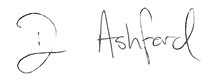 D Ashford